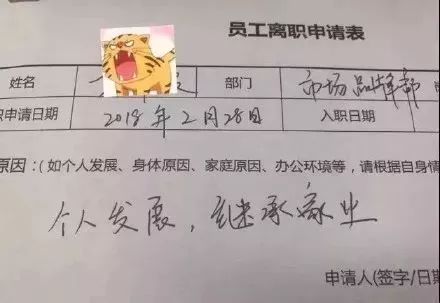 员工离职申请表
姓名 部门 市场品牌部
职申请日期 2018年2月28日 入职日期
原因:(如个人发展、身体原因、家庭原因、办公环境等，请根据自身情
个人发展，继承家业
申请人(签字/日期